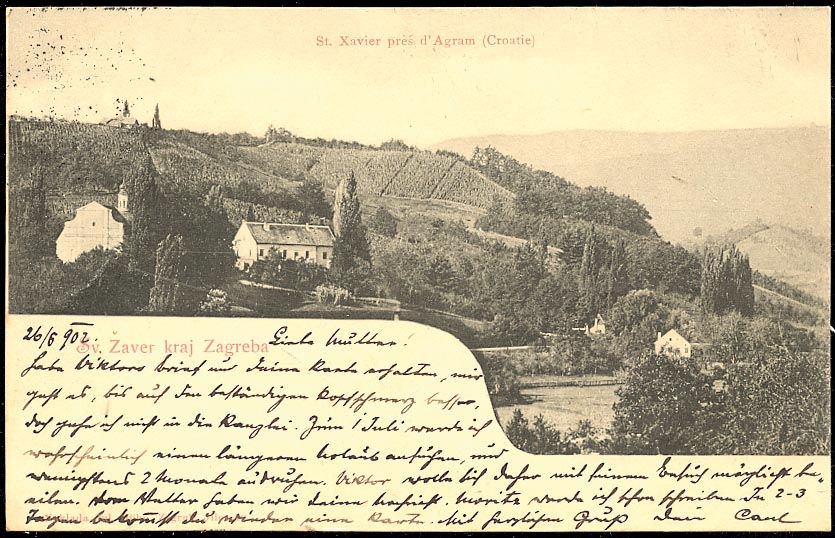 St. Xavier près d'Agram (Croatie)
26/6 902.
Sv. Žaver kraj Zagreba
Liebe Mutter!
Habe Viktors Brief und deine Karte erhalten, mir
geht es, bis auf den beständigen Kopfschmerz besser,
doch gehe ich nicht in die Kanzlei. Zum 1 Juli werde ich
wahrscheinlich einen längeren Urlaub ansuchen, und
wenigstens 2 Monate ausruhen. Viktor wolle sich daher mit seinem Besuch möglichst be-
eilen. Von Walter haben wir keine Nachricht. Moritz werde ich schon schreiben. In 2-3
Tagen bekommst du wieder eine Karte. Mit herzlichem Gruß dein Carl